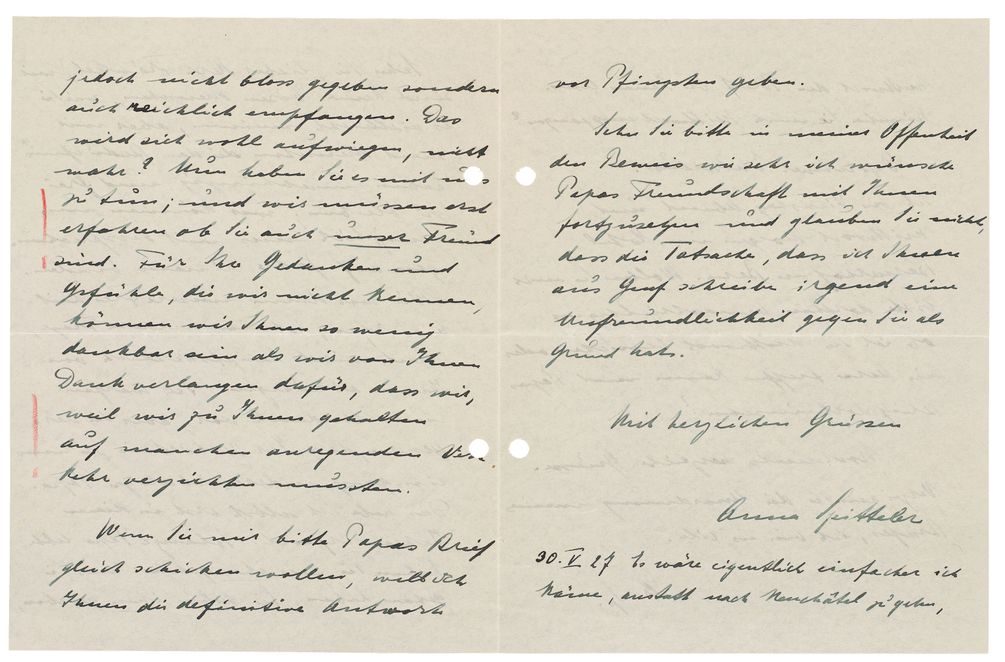 jedoch nicht bloss gegeben sondern
auch reichlich empfangen. Das
wird sich wohl aufwiegen, nicht
wahr? Nun haben Sie es mit uns
zu tun; und wir müssen erst
erfahren ob Sie auch unser Freund
sind. Für Ihre Gedanken und
Gefühle, die wir nicht kennen,
können wir Ihnen so wenig
dankbar sein als wir von Ihnen
Dank verlangen dafür, dass wir,
weil wir zu Ihnen gehalten
auf manchen anregenden Ver-
kehr verzichten mussten.
Wenn Sie mir bitte Papas Brief
gleich schicken wollen, will ich
Ihnen die definitive Antwort
vor Pfingsten geben.
Sehen Sie bitte in meiner Offenheit
den Beweis wie sehr ich wünsche
Papas Freundschaft mit Ihnen
fortzusetzen und glauben Sie nicht,
dass die Tatsache, dass ich Ihnen
aus Genf schreibe irgend eine
Unfreundlichkeit gegen Sie als
Grund hat.
Mit herzlichen Grüssen
Anna Spitteler
30. V 27 Es wäre eigentlich einfacher ich
käme, anstatt nach Neuchâtel zu gehen,